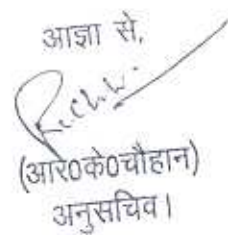 आज्ञा से,
(आर0के0चौहान)
अनुसचिव।